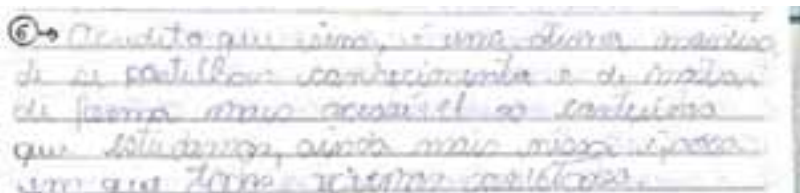 6→ Acredito que sim, é uma ótima maneira
de se partilhar conhecimento e de mostrar
de forma mais acessível os conteúdos
que estudamos, ainda mais nessa época
em que